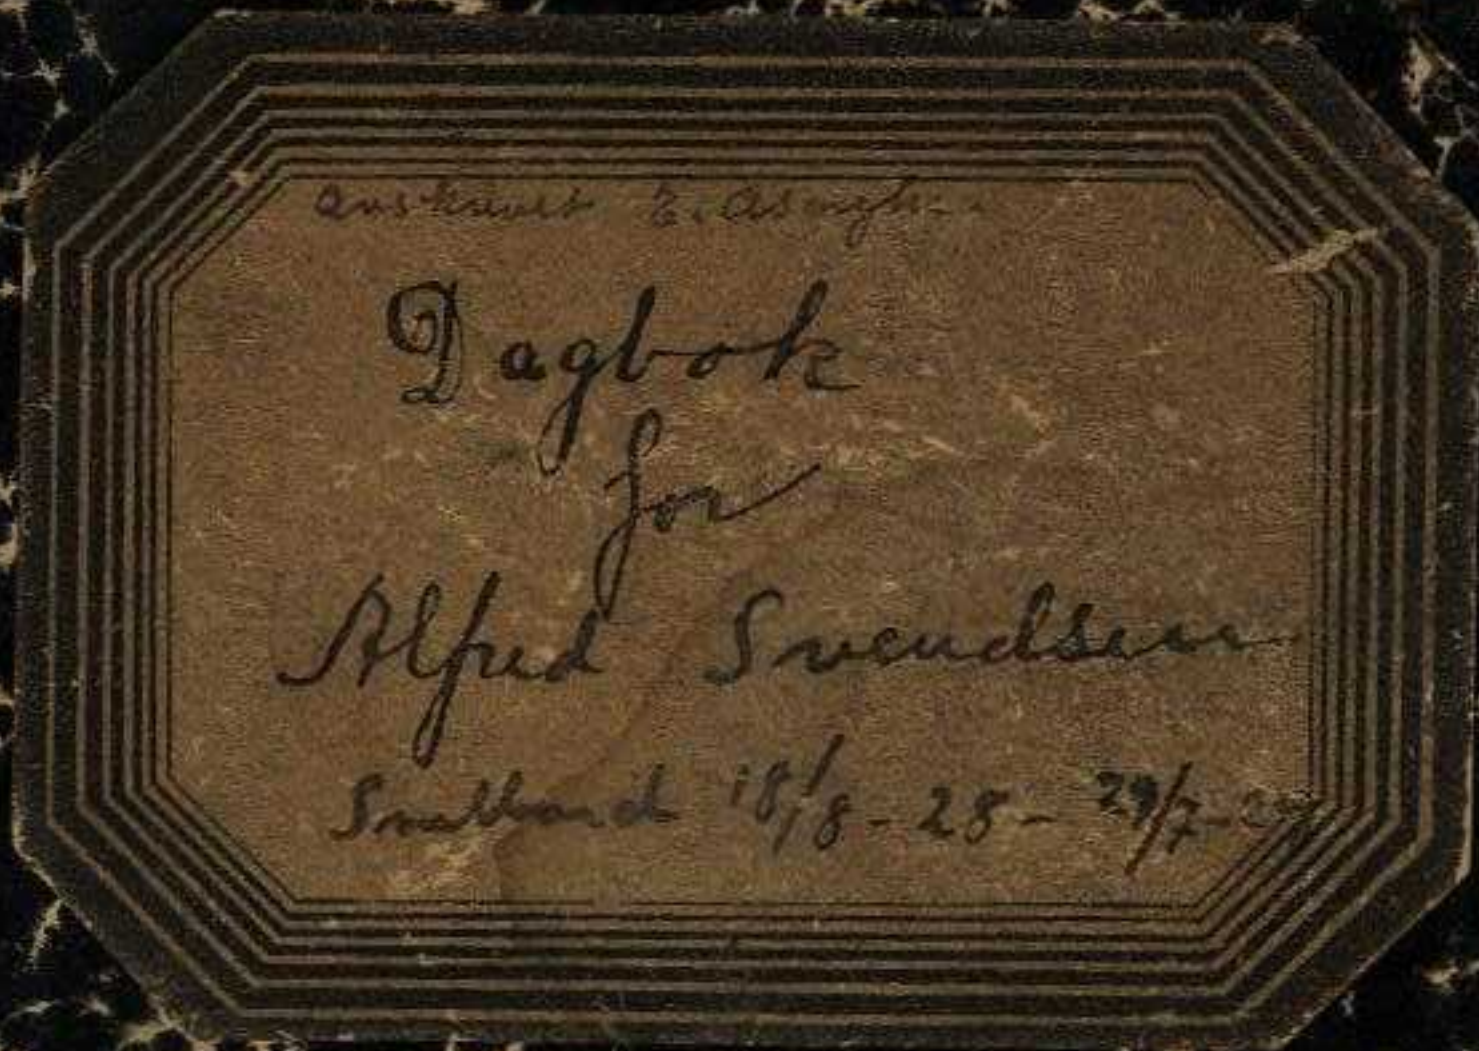 Dagbok
for
Alfred Svendsen
Svalbard 18/8 - 28 - 29/7 - 29